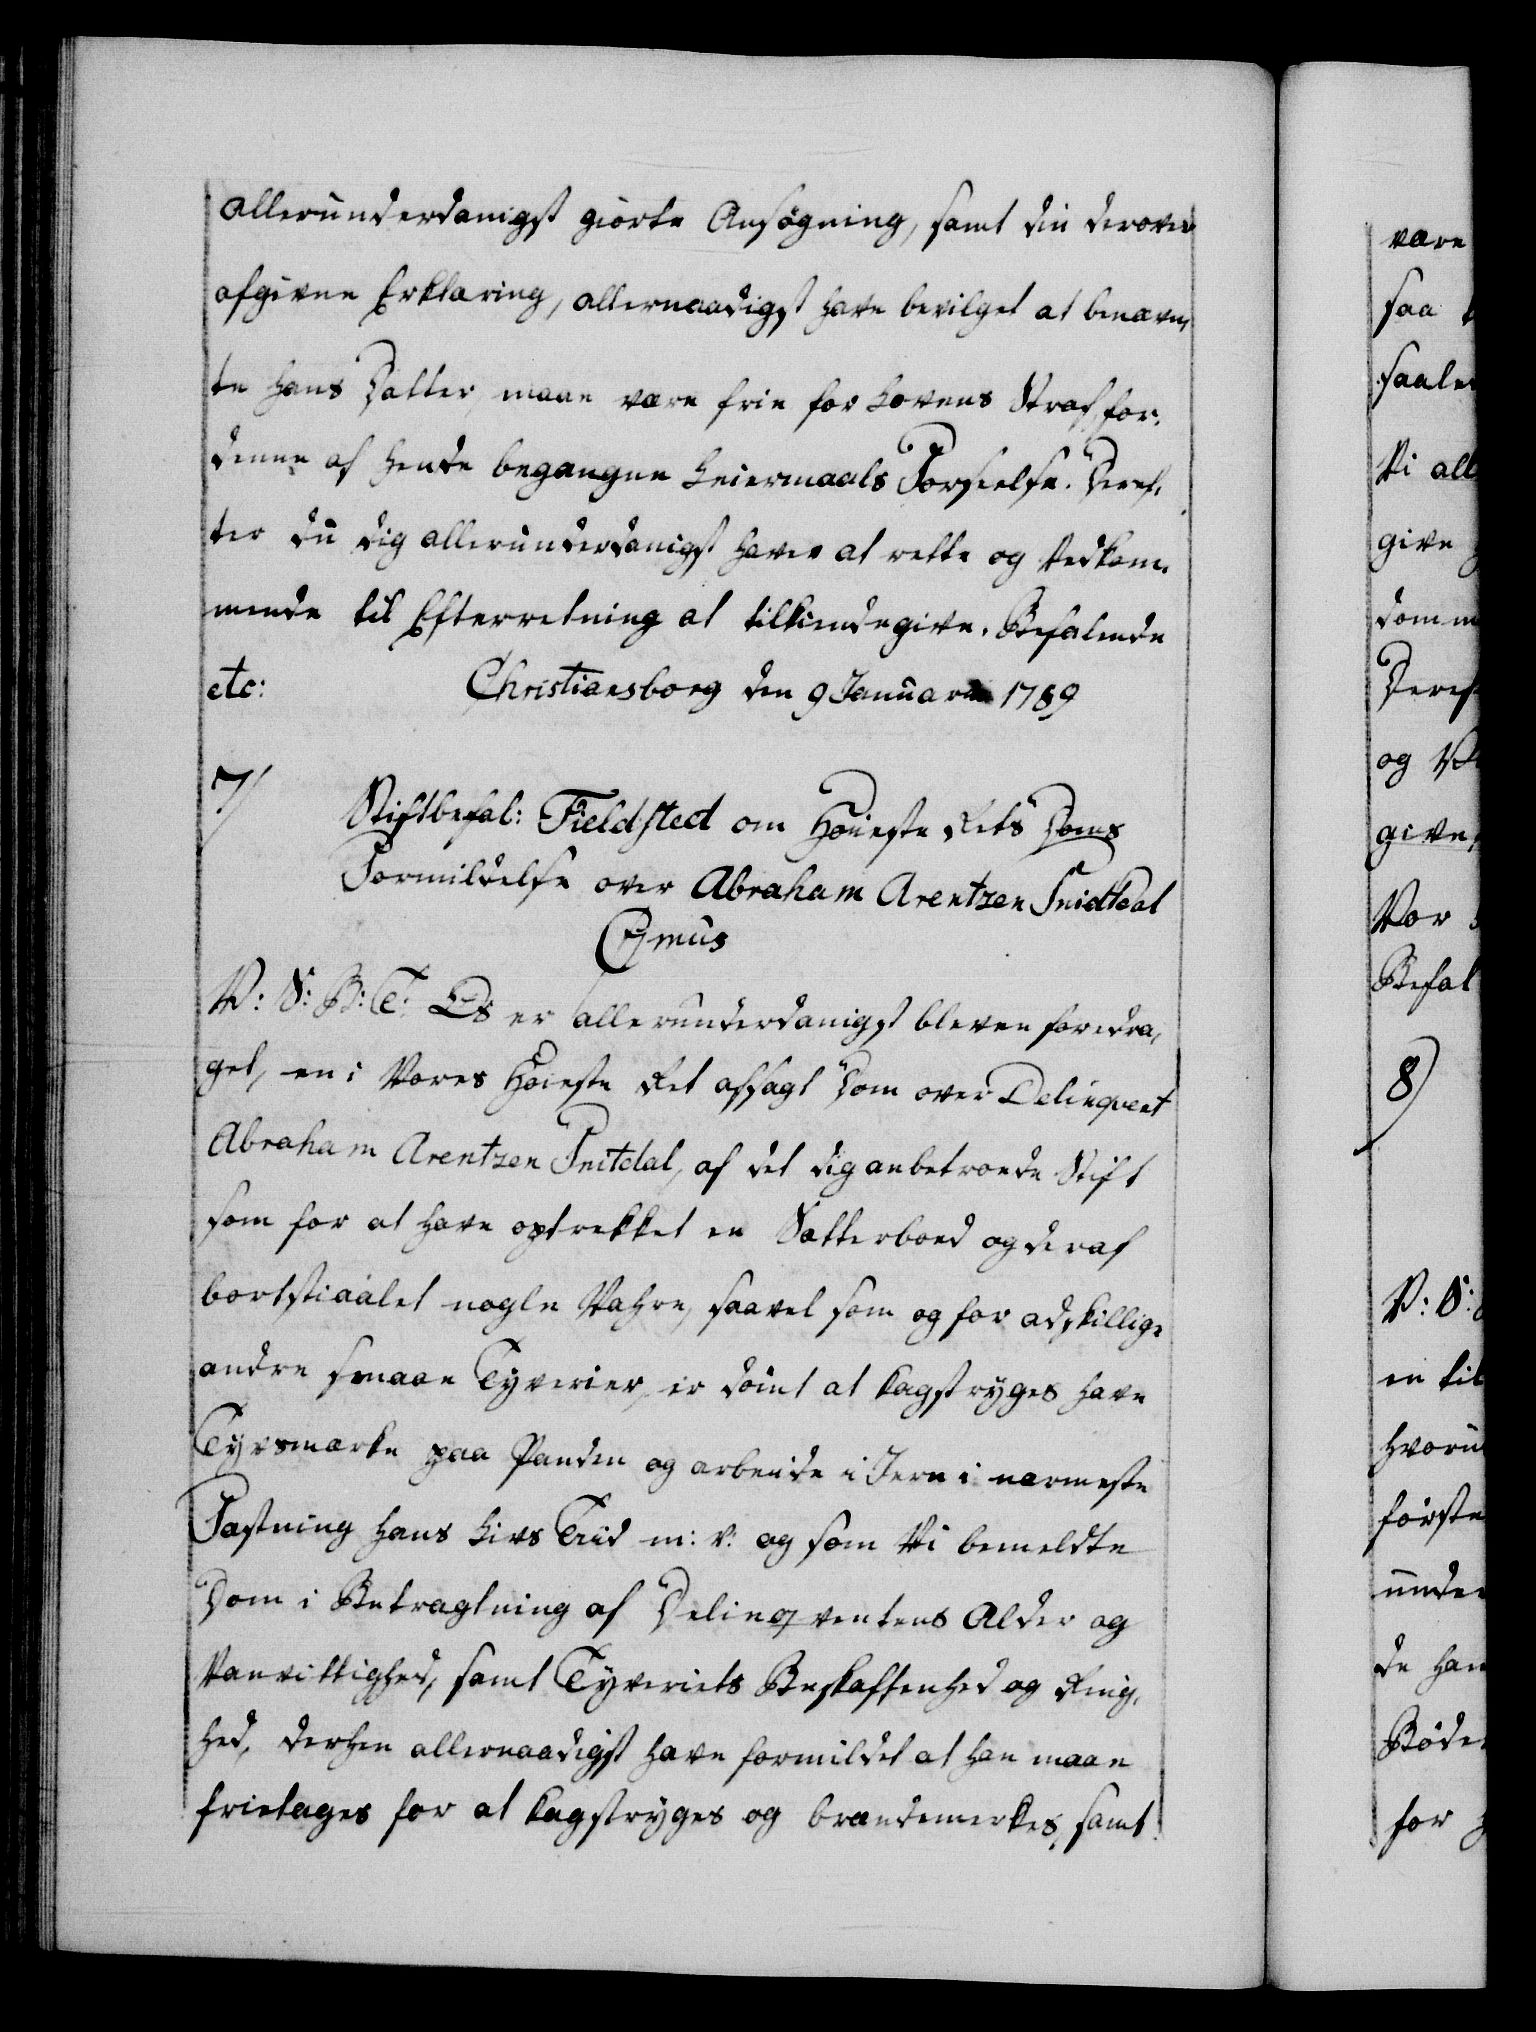 allerunderdanigst giorte Ansøgning, samt din derover
afgivne Erklæring, allernaadigst have bevilget at benævn,
te hans Datter, maae være frie for Lovens Straf for.
denne af hende begangne Leiermaals Forseelse. Deref,
ter du dig allerunderdanigst haver at rette og Vedkom,
mende til Efterretning at tilkiendegive. Befalende
etc: Christiansborg den 9 Januarii 1789
7/
Stiftbefal: Fieldsted om Høieste Rets Doms
Formildelse over Abraham Arentzen Snidtdal
C 7mus
V: S: B: T: Os er allerunderdanigst bleven foredra,
get, en i Vores Høieste Ret afsagt Dom over Delinqvent
Abraham Arentzen Snitdal, af det dig anbetroede Stift
som for at have optrekket en Sætterboed og deraf
bortstiaalet nogle Vahre, saavel som og for adskillige
andre smaae Tyverier, er dømt at kagstryges have
Tyvsmærke paa Panden og arbeide i Jern i nærmeste
Fæstning hans Livs Tiid m: v: og som Vi bemeldte
Dom i Betragtning af Delinqventens Alder og
Vanvittighed, samt Tyveriets Beskaffenhed og Ring,
hed, derhen allernaadigst have formildet at han maae
frietages for at kagstryges og brændemerkes, samt
være
saa
Vi all
give
Deref
og V
give,
Vor
Befal
8)
V: S:
en til
første
de han
Bøde
for